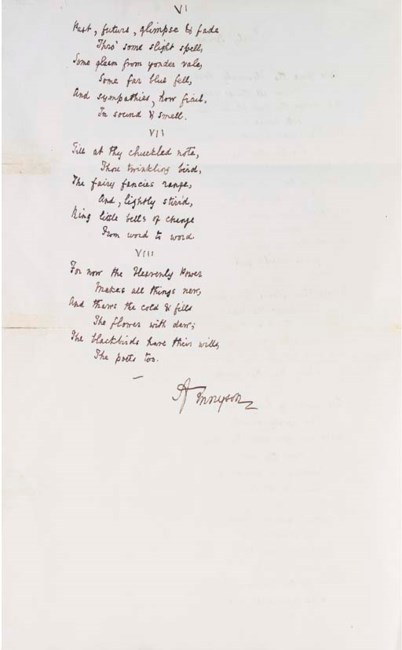 VI
Past, future, glimpse & fade
Thro' some slight spell,
Some gleam from yonder vale,
Some far blue fell,
And sympathies, how frail,
In sound & smell.
VII
Till at thy chuckled note,
Thou twinkling bird,
The fairy fancies range,
And, lightly stirr'd,
Ring little bells of change
From word to word.
VIII
For now the Heavenly Power
Makes all things new,
And thaws the cold & fills
The flower with dew;
The blackbirds have their wills,
The poets too.
A Tennyson